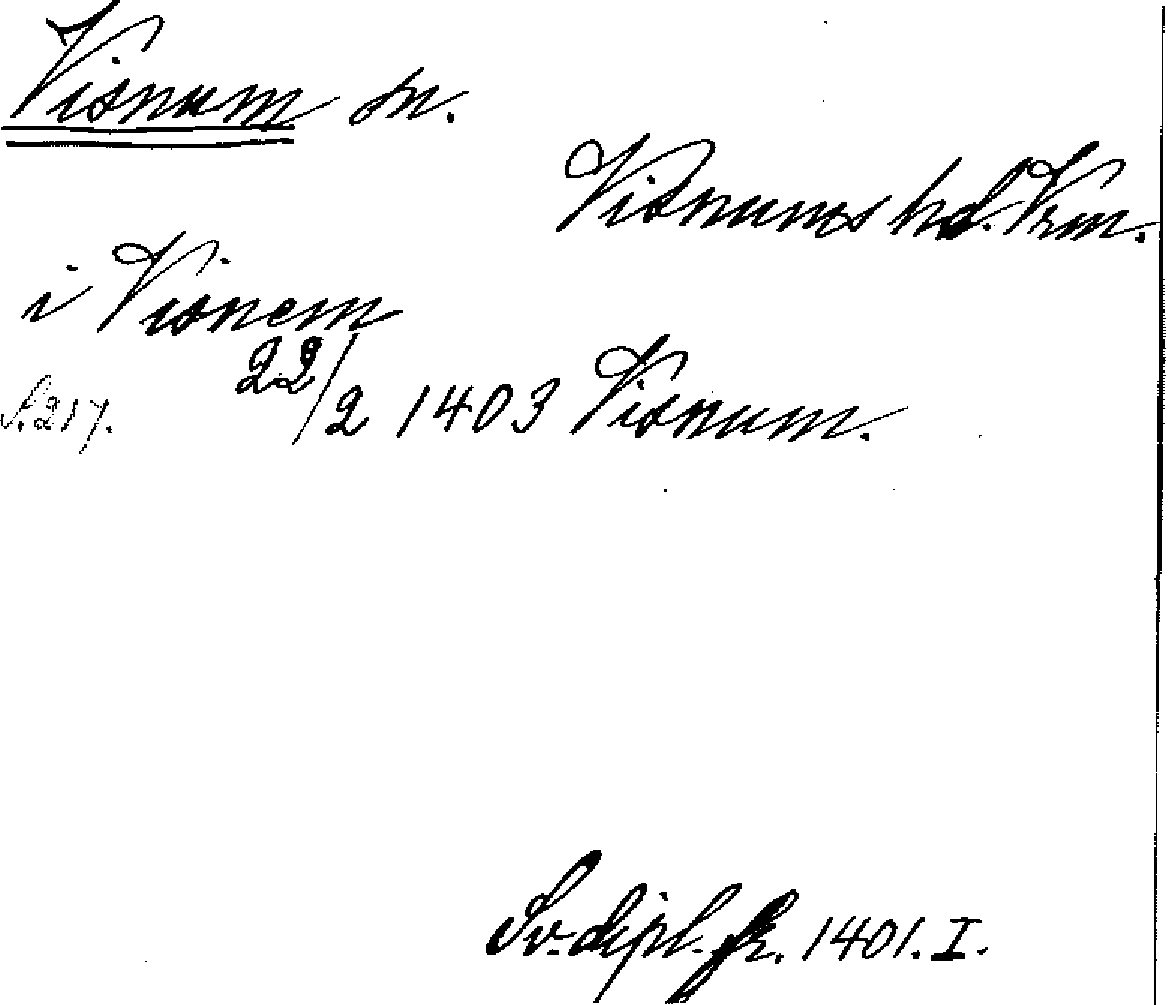 Visnum sn.
Visnums hd. Vrm.
i Visnem
S. 217. 22/2 1403 Visnum.
Sv. dipl. fr. 1401. I.